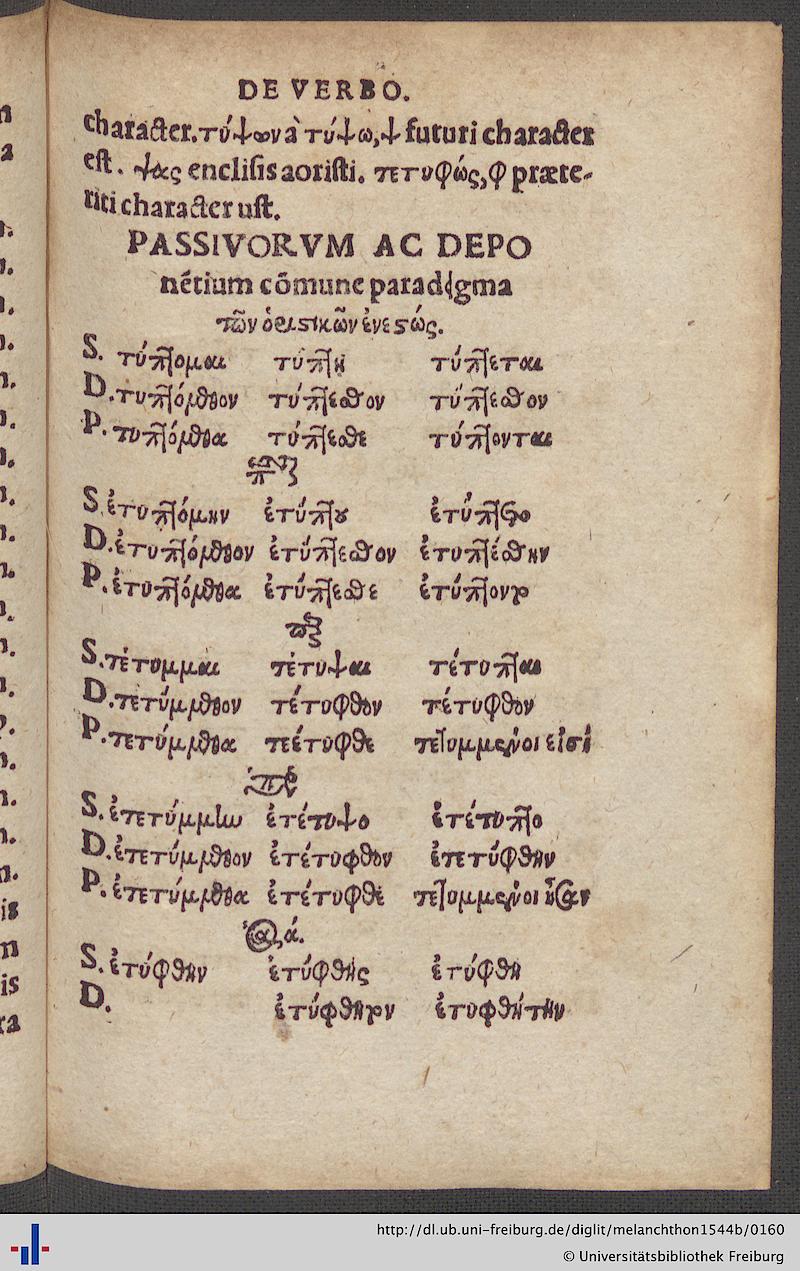 DE VERBO.
character. τύψων à τύψω, ψ futuri character
est. ψας enclisis aoristi. τετυφώς, φ præte-
riti character est.
PASSIVORVM AC DEPO
nẽtium cõmune paradigma
τῶν ὁριστικῶν ἐνεστώς.
S. τύπτομαι τύπτῃ τύπτεται
D. τυπτόμεθον τύπτεσθον τύπτεσθον
P. τυπτόμεθα τύπτεσθε τύπτονται
S. ἐτυπτόμην ἐτύπτου ἐτύπτετο
D. ἐτυπτόμεθον ἐτύπτεσθον ἐτυπτέσθην
P. ἐτυπτόμεθα ἐτύπτεσθε ἐτύπτοντο
S. τέτυμμαι τέτυψαι τέτυπται
D. τετύμμεθον τέτυφθον τέτυφθον
P. τετύμμεθα τέτυφθε τετυμμένοι εἰσί
S. ἐτετύμμην ἐτέτυψο ἐτέτυπτο
D. ἐτετύμμεθον ἐτέτυφθον ἐτετύφθην
P. ἐτετύμμεθα ἐτέτυφθε τετυμμένοι ἦσαν
S. ἐτύφθην ἐτύφθης ἐτύφθη
D. ἐτύφθητον ἐτυφθήτην
http://dl.ub.uni-freiburg.de/diglit/melanchthon1544b/0160
© Universitätsbibliothek Freiburg